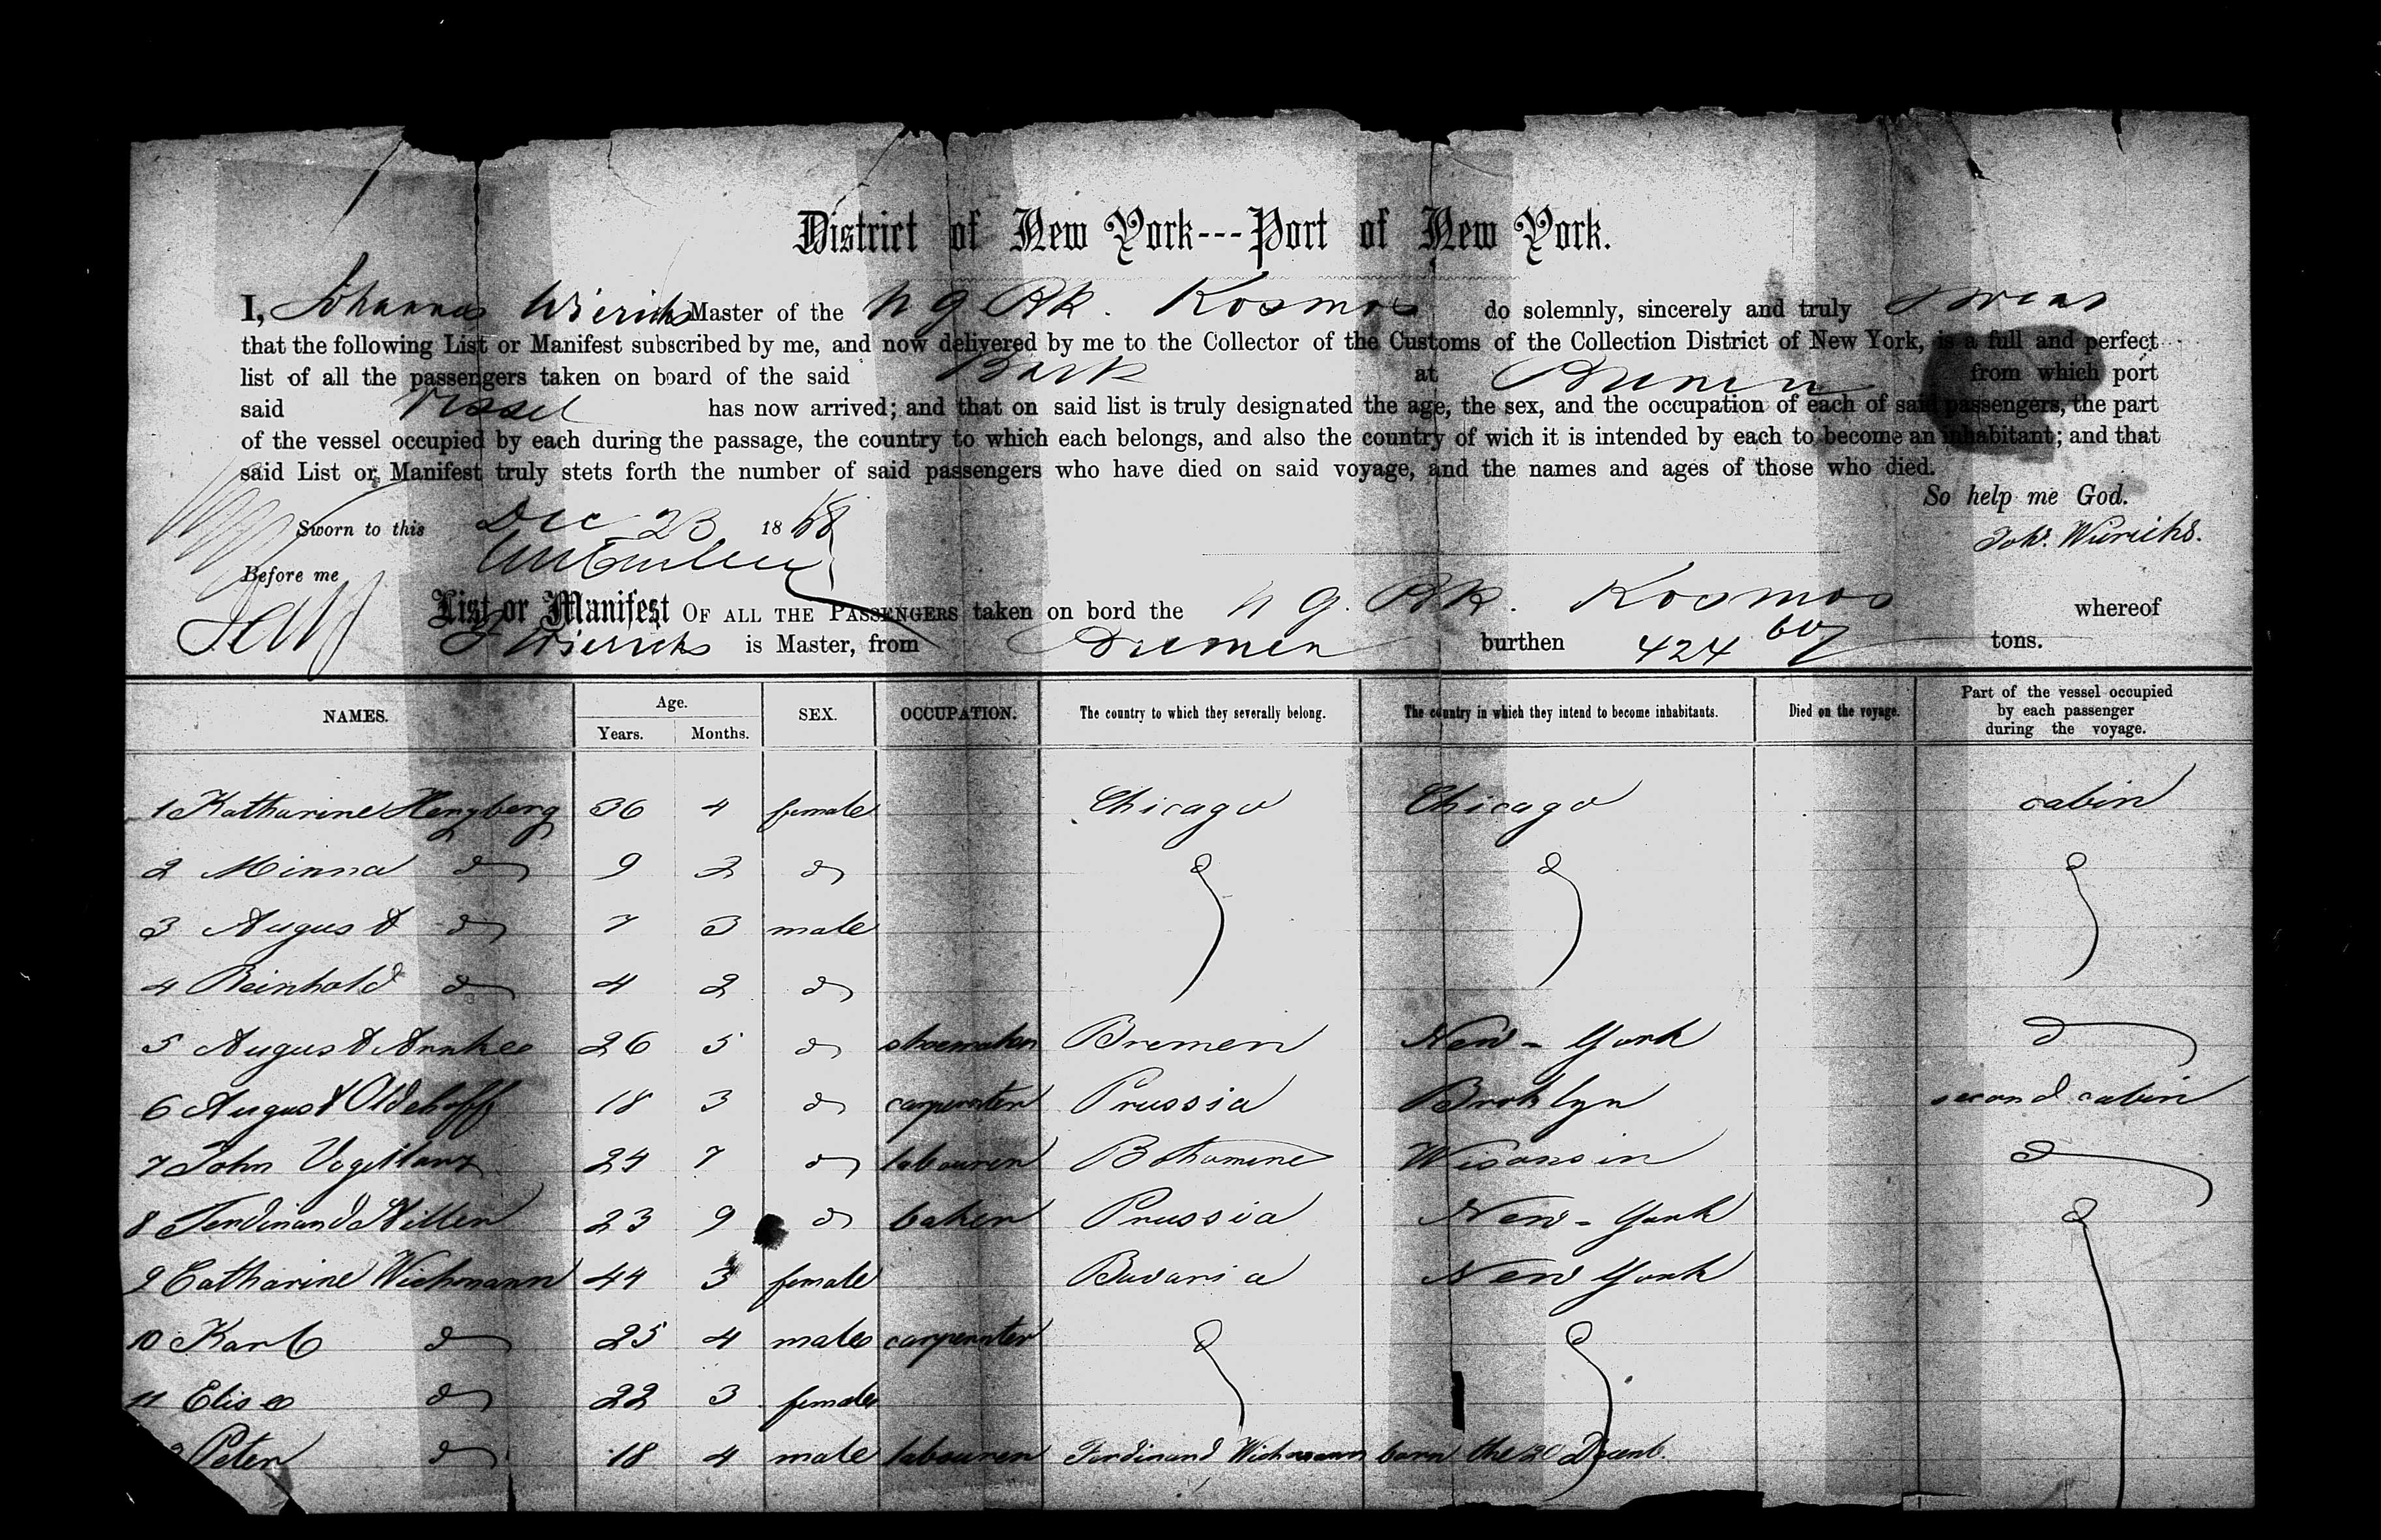 District of New York---Port of New York.
I, Johannes Wierichs Master of the N G Bk. Kosmos do solemnly, sincerely and truly swear
that the following List or Manifest subscribed by me, and now delivered by me to the Collector of the Customs of the Collection District of New York, is a full and perfect
list of all the passengers taken on board of the said Bark at Bremen from which port
said Vessel has now arrived; and that on said list is truly designated the age, the sex, and the occupation of each of said passengers, the part
of the vessel occupied by each during the passage, the country to which each belongs, and also the country of wich it is intended by each to become an inhabitant; and that
said List or Manifest truly stets forth the number of said passengers who have died on said voyage, and the names and ages of those who died.
So help me God.
Sworn to this Dec 23 1868
Joh. Wierichs.
Before me
List or Manifest OF ALL THE PASSENGERS taken on bord the N G. Bk. Kosmos whereof
J Wierichs is Master, from Bremen burthen 424 tons.
NAMES. Age. Years. Months. SEX. OCCUPATION. The country to which they severally belong. The country in which they intend to become inhabitants. Died on the voyage. Part of the vessel occupied by each passenger during the voyage.
1 Katharine Hengberg 36 4 female Chicago Chicago cabin
2 Minna do 9 2 do do do do
3 August do 7 3 male
4 Reinhold do 4 2 do
5 August Annkes 26 5 do shoemaker Bremen New-York do
6 August Oldehoff 18 3 do carpenter Prussia Broklyn second cabin
7 John 24 7 do labourer Wisconsin do
8 Ferdinand Hiller 23 9 do baker Prussia New-York do
9 Catharine Wichmann 44 3 female Bavaria New York
10 Karl do 25 4 male carpenter do do
11 Elise do 22 3 female
Peter do 18 4 male labourer Ferdinand Wichmann born the 20 Decemb.